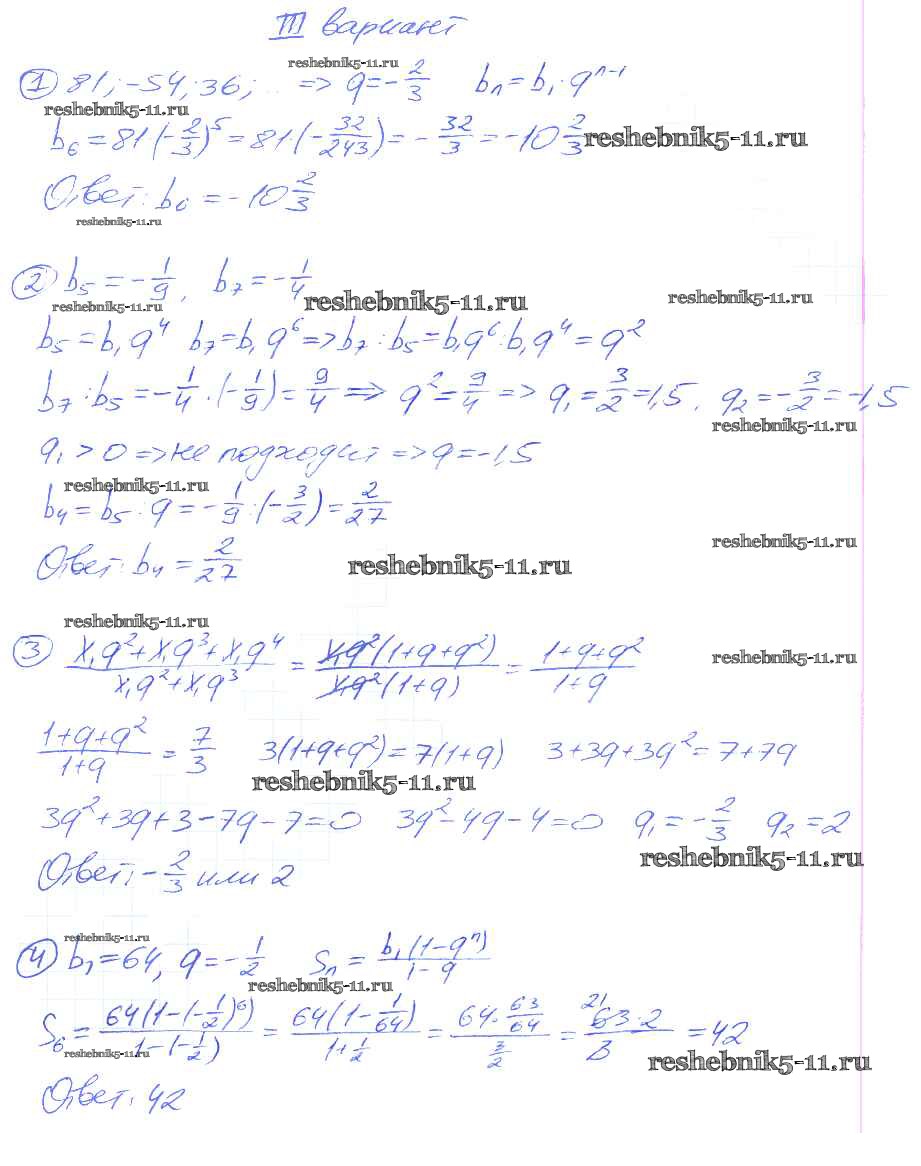 III вариант
reshebnik5-11.ru
① 81; -54; 36; ... => q = -2/3   bₙ = b₁·qⁿ⁻¹
reshebnik5-11.ru
b₆ = 81(-2/3)⁵ = 81·(-32/243) = -32/3 = -10 2/3
reshebnik5-11.ru
Ответ: b₆ = -10 2/3
reshebnik5-11.ru
② b₅ = -1/9, b₇ = -1/4
reshebnik5-11.ru reshebnik5-11.ru reshebnik5-11.ru
b₅ = b₁q⁴ b₇ = b₁q⁶ => b₇:b₅ = b₁q⁶:b₁q⁴ = q²
b₇:b₅ = -1/4·(-1/9) = 9/4 => q² = 9/4 => q₁ = 3/2 = 1,5. q₂ = -3/2 = -1,5
reshebnik5-11.ru
q₁ > 0 => не подходит => q = -1,5
reshebnik5-11.ru
b₄ = b₅·q = -1/9·(-3/2) = 2/27
reshebnik5-11.ru
Ответ: b₄ = 2/27
reshebnik5-11.ru
reshebnik5-11.ru
③ (x₁q²+x₁q³+x₁q⁴)/(x₁q²+x₁q³) = x₁q²(1+q+q²)/x₁q²(1+q) = (1+q+q²)/(1+q)
reshebnik5-11.ru
(1+q+q²)/(1+q) = 7/3   3(1+q+q²) = 7(1+q)   3+3q+3q² = 7+7q
reshebnik5-11.ru
3q²+3q+3-7q-7=0   3q²-4q-4=0   q₁ = -2/3   q₂ = 2
reshebnik5-11.ru
Ответ: -2/3 или 2
reshebnik5-11.ru
④ b₁ = 64, q = -1/2   Sₙ = b₁(1-qⁿ)/(1-q)
reshebnik5-11.ru
S₆ = 64(1-(-1/2)⁶)/(1-(-1/2)) = 64(1-1/64)/(1+1/2) = (64·63/64)/(3/2) = 21 63·2/3 = 42
reshebnik5-11.ru reshebnik5-11.ru
Ответ: 42